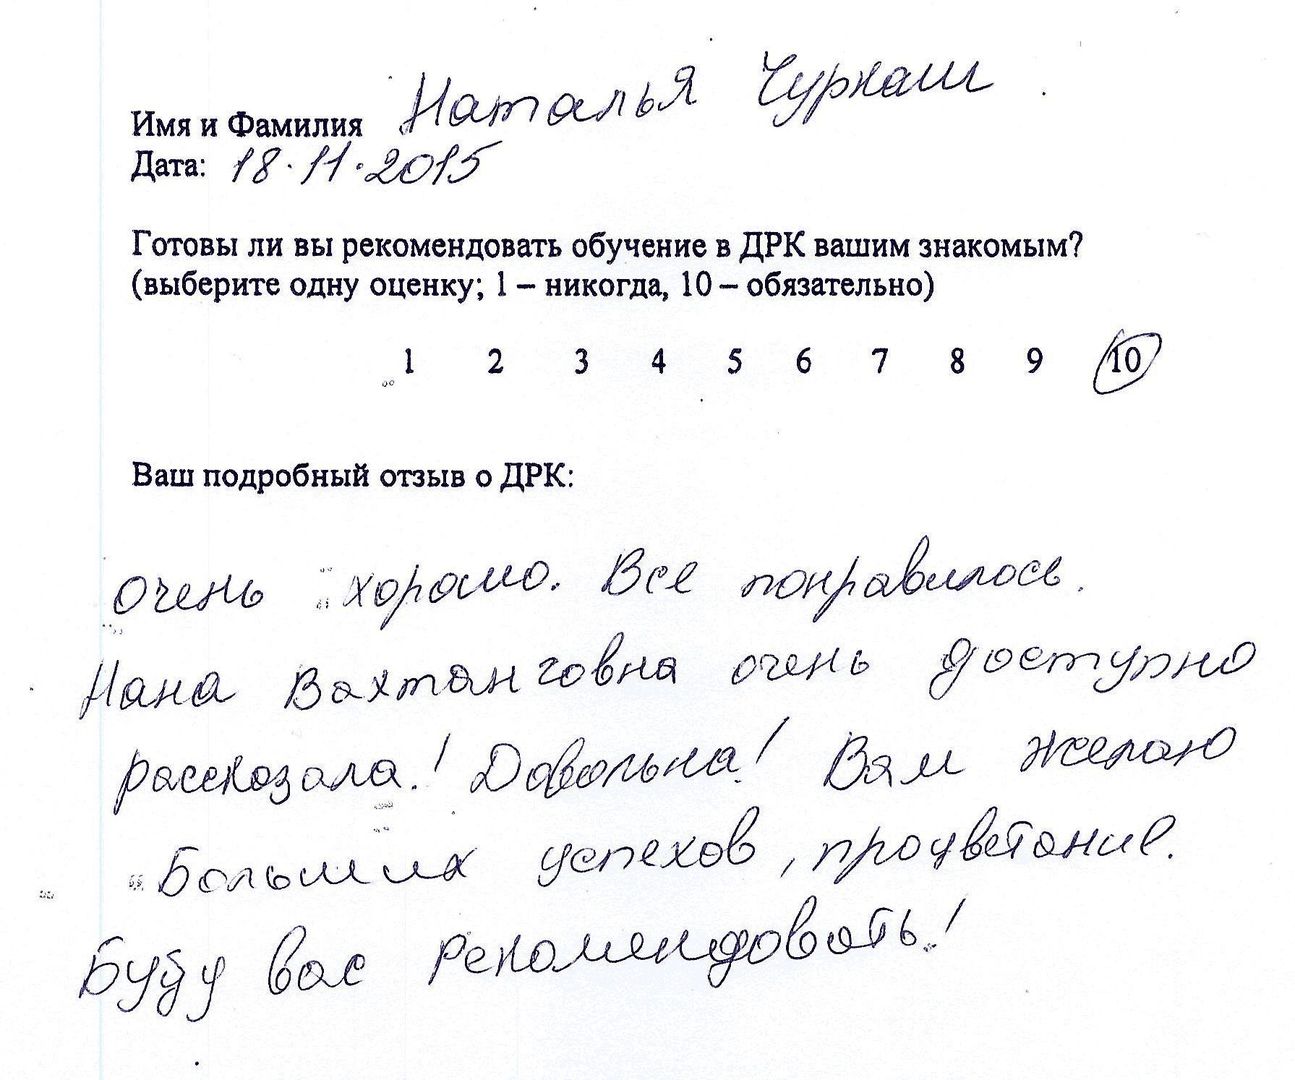 Имя и Фамилия Наталья Чуркаш
Дата: 18.11.2015
Готовы ли вы рекомендовать обучение в ДРК вашим знакомым?
(выберите одну оценку; 1 – никогда, 10 – обязательно)
1 2 3 4 5 6 7 8 9 10
Ваш подробный отзыв о ДРК:
Очень хорошо. Все понравилось.
Нана Вахтанговна очень доступно
рассказала! Довольна! Вам желаю
Больших успехов, процветание.
Буду вас рекомендовать!